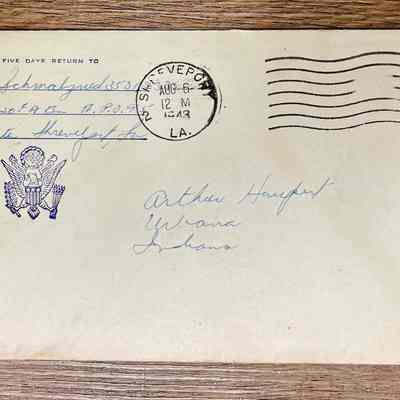 FIVE DAYS RETURN TO
Shreveport, La
SHREVEPORT
AUG 6
12 M
1943
LA.
2
Arthur Haupert
Urbana
Indiana